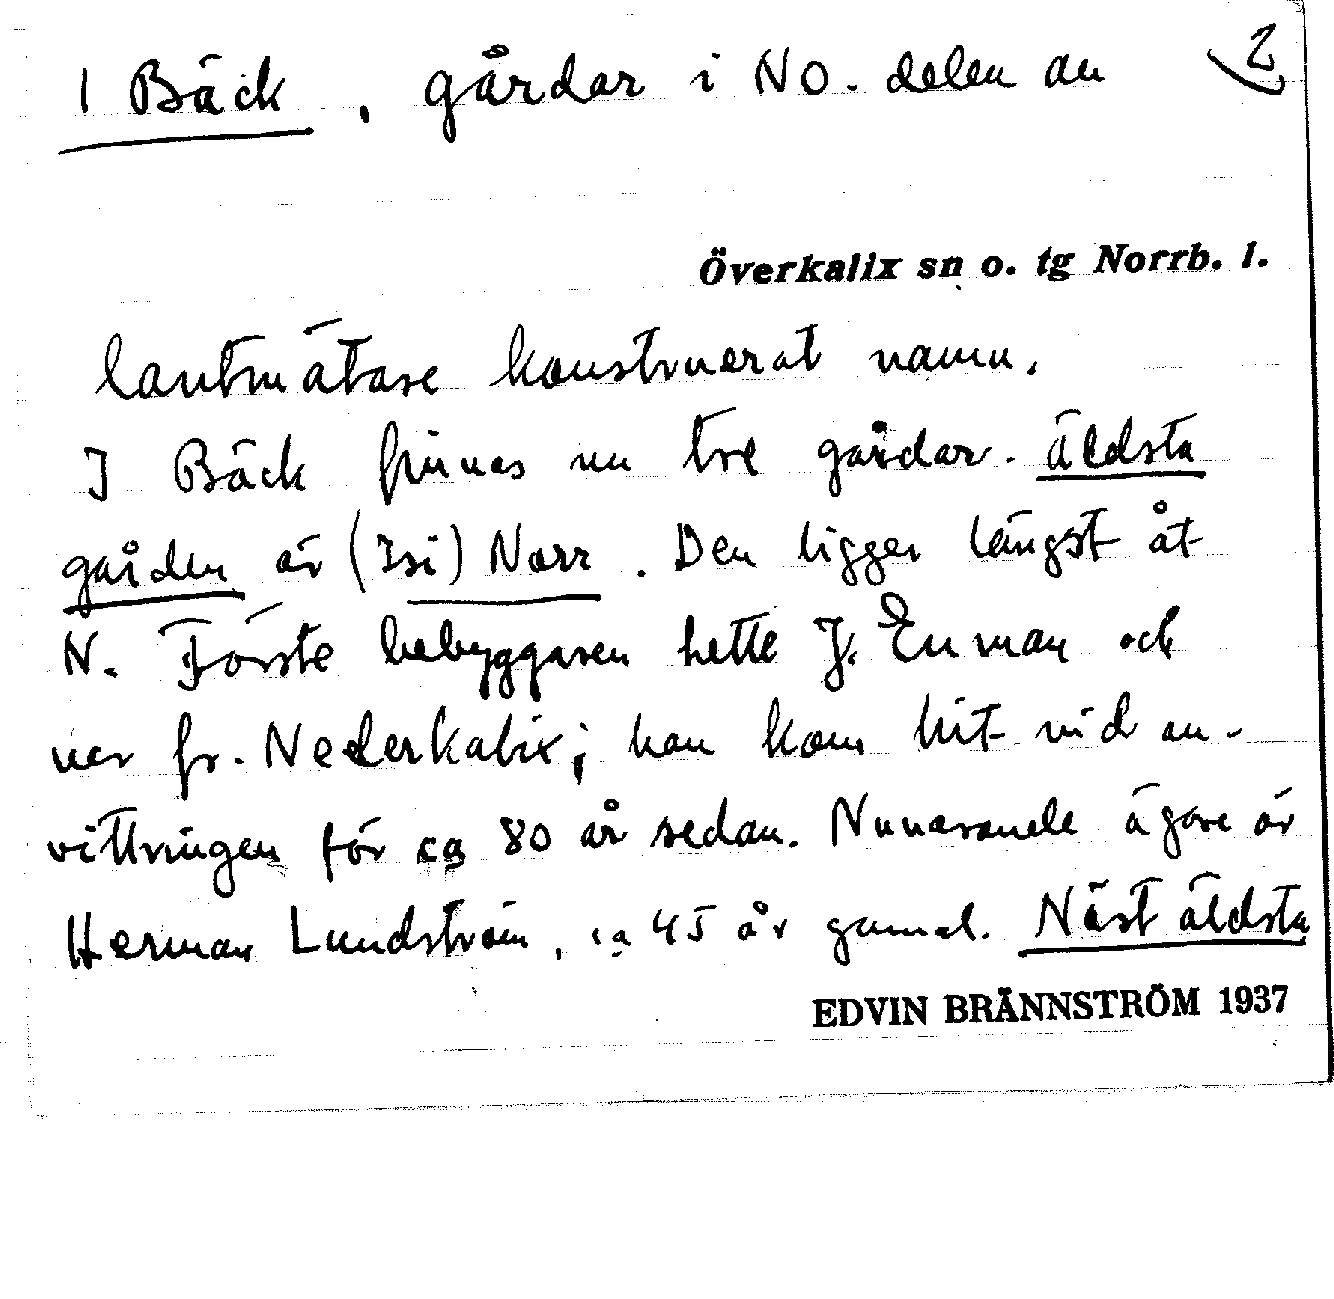 1 Bäck, gårdar i NO. delen av 2
Överkalix sn o. tg Norrb. l.
lantmätare konstruerat namn.
I Bäck finnas nu tre gårdar. Äldsta
gården är (Isi) Narr. Den ligger längst åt
N. Förste bebyggaren hette J. Enman och
var fr. Nederkalix; han kom hit vid av-
vittringen för ca 80 år sedan. Nuvarande ägare är
Herman Lundström, ca 45 år gammal. Näst äldsta
EDVIN BRÄNNSTRÖM 1937